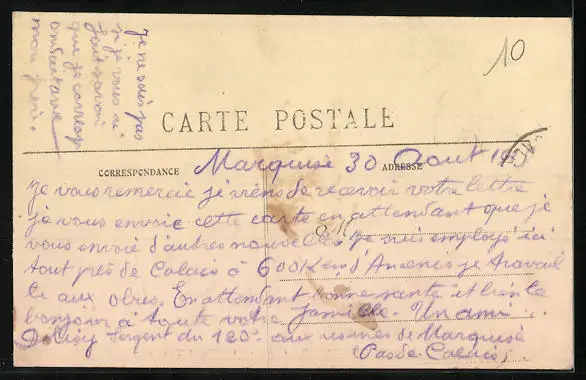 Je ne sais pas
si je vous ai
fait savoir
que je corresp
mon père.
10
CARTE POSTALE
CORRESPONDANCE
ADRESSE
Marquise 30 Aout 19
Je vous remercie je viens de recevoir votre lettre
je vous envoie cette carte en attendant que je
vous envoie d'autres nouvelles je suis employé ici
tout près de Calais à 600 Km d'Ancenis je travail
le aux obus. En attendant bonne santé et bien le
bonjour à toute votre famille. Un ami
Sergent du 123e aux usines de Marquise
(Pas de Calais)